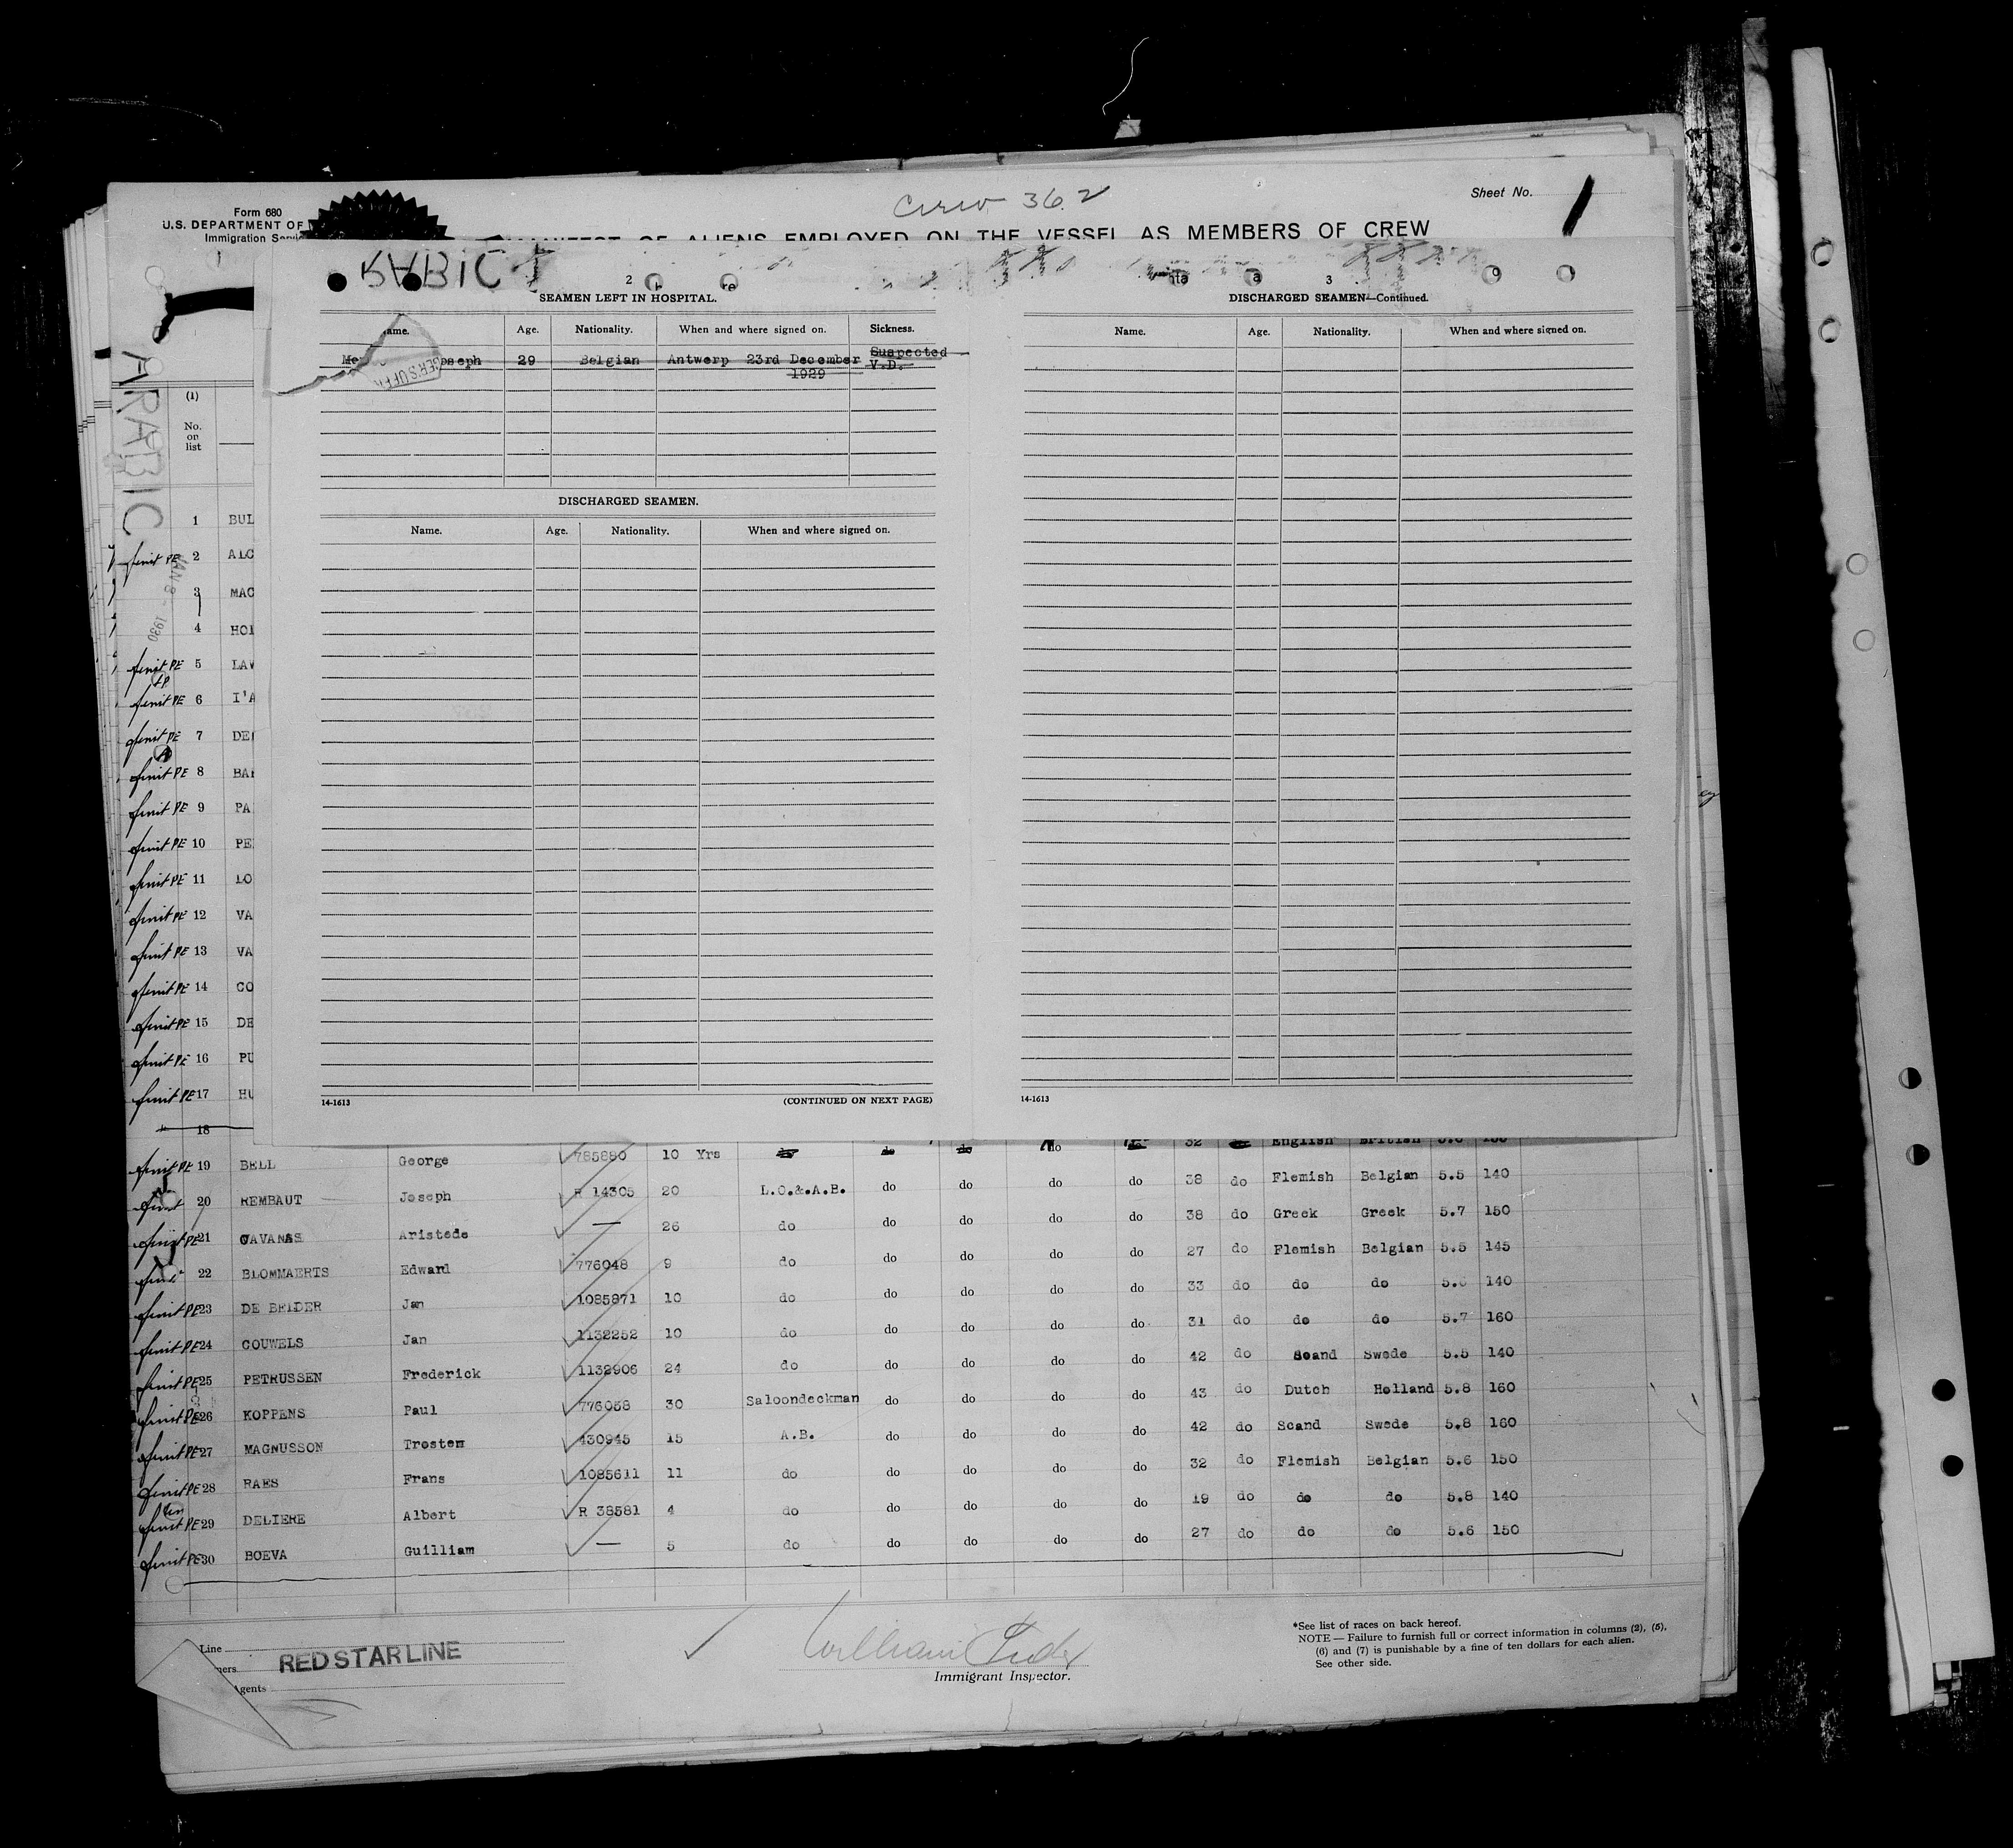 Form 680
U.S. DEPARTMENT OF
Immigration
Crew 362
Sheet No. 1
MANIFEST OF ALIENS EMPLOYED ON THE VESSEL AS MEMBERS OF CREW
ARABIC
JAN 8 - 1930
(1)
No. on list
2
SEAMEN LEFT IN HOSPITAL.
Name. Age. Nationality. When and where signed on. Sickness.
oseph 29 Belgian Antwerp 23rd December 1929 Suspected V.D.
DISCHARGED SEAMEN.
Name. Age. Nationality. When and where signed on.
14-1613 (CONTINUED ON NEXT PAGE)
3
DISCHARGED SEAMEN—Continued.
Name. Age. Nationality. When and where signed on.
14-1613
1 BUL
2 ALC
3 MAC
4 HOL
5 LAV
6 I'A
7 DE
8 BA
9 PA
10 PE
11 LO
12 VA
13 VA
14 CO
15 DE
16 PU
17 HU
18
32 English British
19 BELL George 785880 10 Yrs do
38 do Flemish Belgian 5.5 140
20 REMBAUT Joseph R 14305 20 L.O.&.A.B. do do do do
38 do Greek Greek 5.7 150
21 Aristede — 26 do do do do do
27 do Flemish Belgian 5.5 145
22 BLOMMAERTS Edward 776048 9 do do do do do
33 do do do 5.6 140
23 DE BELDER Jan 1085871 10 do do do do do
31 do do do 5.7 160
24 COUWELS Jan 1132252 10 do do do do do
42 do Scand Swede 5.5 140
25 PETRUSSEN Frederick 1132906 24 do do do do do
43 do Dutch Holland 5.8 160
26 KOPPENS Paul 776058 30 Saloondeckman do do do do
42 do Scand Swede 5.8 160
27 MAGNUSSON Trostem 430945 15 A.B. do do do do
32 do Flemish Belgian 5.6 150
28 RAES Frans 1085611 11 do do do do do
19 do do do 5.8 140
29 DELIERE Albert R 38581 4 do do do do do
27 do do do 5.6 150
30 BOEVA Guilliam — 5 do do do do do
Line
RED STAR LINE
Agents
William
Immigrant Inspector.
*See list of races on back hereof.
NOTE — Failure to furnish full or correct information in columns (2), (5),
(6) and (7) is punishable by a fine of ten dollars for each alien.
See other side.